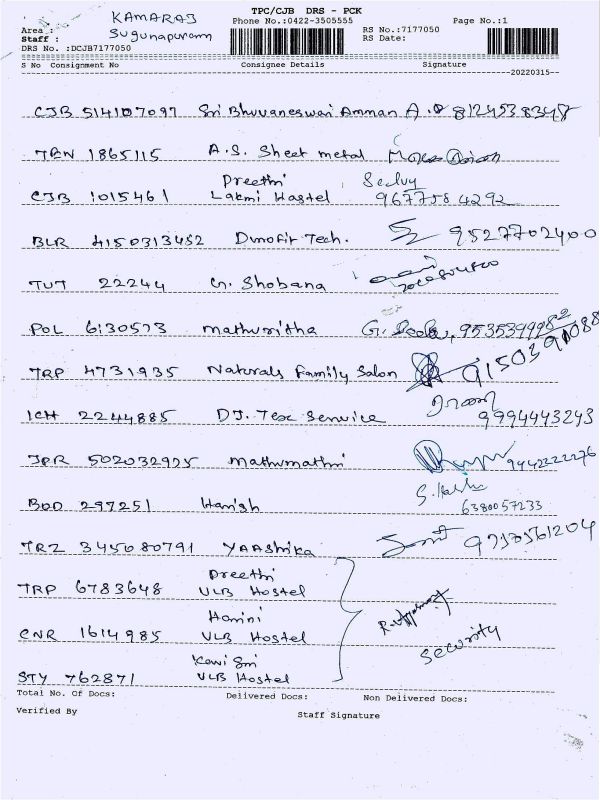 TPC/CJB DRS - PCK
KAMARAJ
Phone No.:0422-3505555 Page No.:1
Area :
Staff : Sugunapuram RS No.:7177050
RS Date:
DRS No. :DCJB7177050
S No Consignment No Consignee Details Signature
20220315
CJB 514107097 Sri Bhuvaneswari Amman A. 8124538348
TEN 1865115 A.S. Sheet metal
Preethi Selvy
CJB 1015461 Lakmi Hostel 9677584292
BLR 4150313452 Dunofit Tech. 9527702400
TUT 22244 G. Shobana
POL 6130573 Mathuritha G. 9535399982
TRP 4731935 Naturals Family Salon 9150391088
ICH 2244885 DJ. Tex Service 9994443243
JPR 502032925 Mathumathi 9442222276
BOD 297251 Harish
6380057233
TRZ 345080791 YAAshika 9757561204
Preethi
TRP 6783648 VLB Hostel
Harini
CNR 1614985 VLB Hostel
Security
Kavi Sri
STY 762871 VLB Hostel
Total No. Of Docs: Delivered Docs: Non Delivered Docs:
Verified By Staff Signature